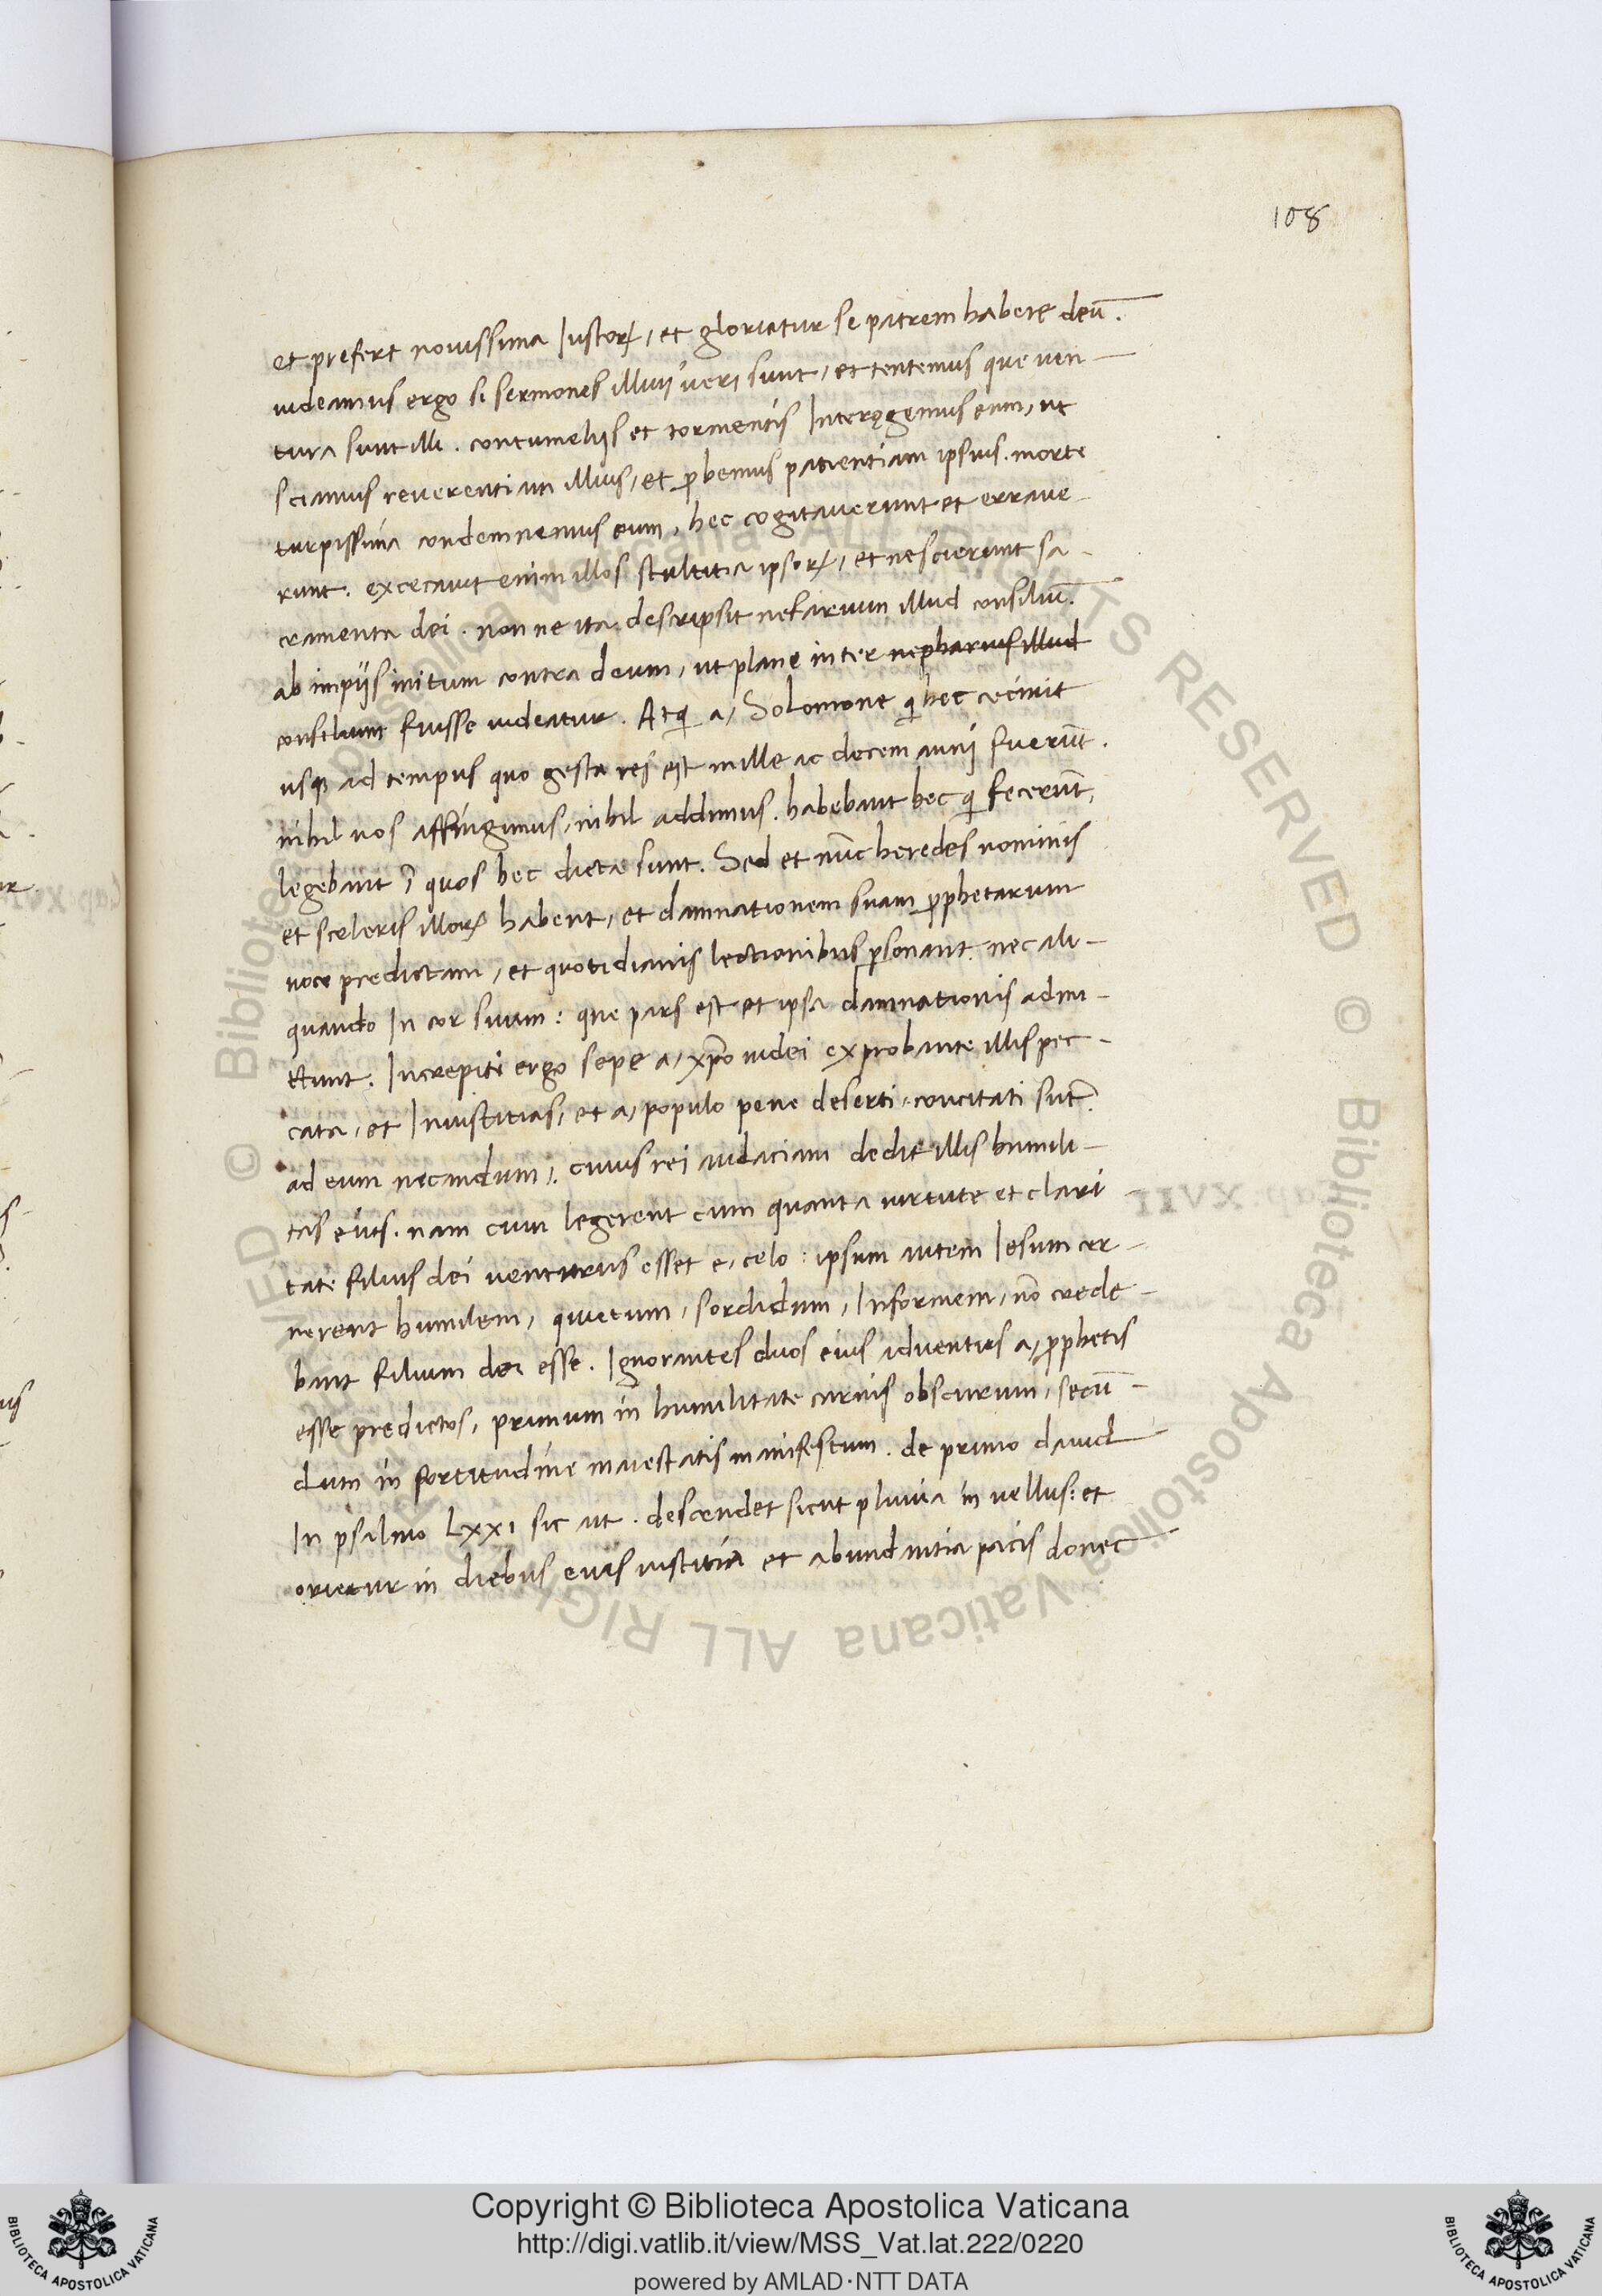 108
et prefert nouissima Iustoꝝ, et gloriatur se patrem habere deū.
uideamus ergo si sermones illius ueri sunt, et tentemus que uen-
tura sunt illi. contumelijs et tormentis Interęgemus eum, ut
sciamus reuerentiam illius, et ꝓbemus patientiam ipsius. morte
turpissima condemnemus eum, hec cogitauerunt et erraue-
runt. excecauit enim illos stultitia ipsoꝝ, et nescierunt sa-
cramenta dei. non ne ita descripsit nefarium illud consiliū.
ab impijs initum contra deum, ut plane inter nepharius illud
consilium fuisse uideatur. Atq̄ a, Solomone q̄ hec cecinit
usqꝫ ad tempus quo gesta res est mille ac decem annj fuerūt.
nihil nos affingimus, nihil addimus. habebant hec q̄ fecerūt,
legebant ī quos hec dicta sunt. Sed et nūc heredes nominis
et sceleris illoꝝ habent, et damnationem suam ꝓphetarum
uoce predictam, et quotidianis lectionibus ꝑsonant. nec ali-
quando In cor suum: que pars est et ipsa damnationis admi-
ttunt. Increpiti ergo sepe a, xp̄o iudei exprobante illis pec-
cata, et Iniustitias, et a, populo pene deserti, concitati sūt
ad eum necandum,. cuius rei audaciam dedit illis humili-
tas eius. nam cum legerent cum quanta uirtute et clari-
tate filius dei uenturus esset e, celo: ipsum autem Iesum cer-
nerent humilem, quietum, sordidum, Informem, nō crede-
bant filium dei esse. Ignorantes duos eius aduentus a, ꝓphetis
esse predictos, primum in humilitate carnis obscurum, secū-
dum in fortitudine maiestatis manifestum. de primo dauid
In psalmo LXXI sic ait. descendet sicut pluuia in uellus: et
orietur in diebus eius iustitia et abundantia pacis donec
© Biblioteca Apostolica Vaticana ALL RIGHTS RESERVED © Biblioteca Apostolica Vaticana ALL RIGHTS RESERVED
Copyright © Biblioteca Apostolica Vaticana
http://digi.vatlib.it/view/MSS_Vat.lat.222/0220
powered by AMLAD·NTT DATA
BIBLIOTECA APOSTOLICA VATICANA
BIBLIOTECA APOSTOLICA VATICANA